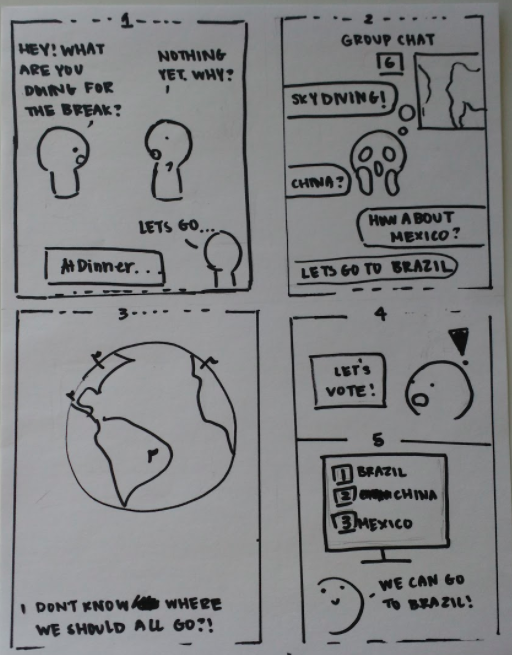 1
HEY! WHAT
ARE YOU
DOING FOR
THE BREAK?
NOTHING
YET. WHY?
?
LETS GO...
At Dinner...
2
GROUP CHAT
6
SKYDIVING!
CHINA?
HOW ABOUT
MEXICO?
LETS GO TO BRAZIL
3
I DONT KNOW WHERE
WE SHOULD ALL GO?!
4
LET'S
VOTE!
5
1 BRAZIL
2 CHINA
3 MEXICO
WE CAN GO
TO BRAZIL!